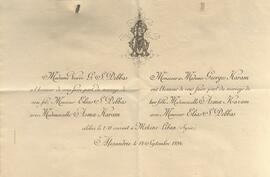 Madame Veuve G. S. Debbas
a l'honneur de vous faire part du mariage de
son fils, Monsieur Elias S. Debbas
avec Mademoiselle Asma Karam
Monsieur & Madame Georges Karam
ont l'honneur de vous faire part du mariage de
leur fille, Mademoiselle Asma Karam
avec Monsieur Elias S. Debbas
célébré le courant à Liban (Syrie)
Alexandrie, le Septembre